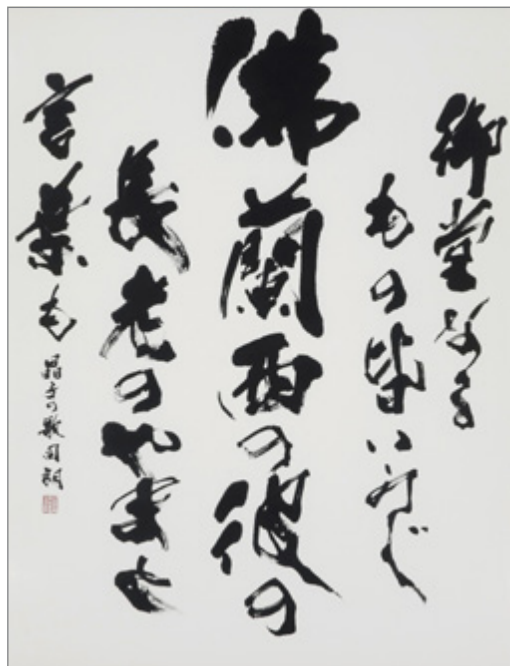 御堂なる
もの皆いみじ
佛蘭西の彼の
長老のやまと
言葉も
晶子の歌